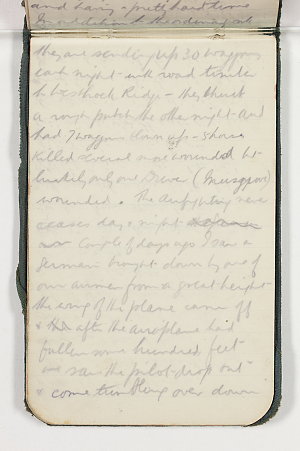 and having a pretty hard time
In addition to the ordinary work
they are sending up 30 waggons
each night with road timber
to Westhoek Ridge - they struck
a rough patch the other night and
had 7 waggons blown up - 5 horses
killed several more wounded but
luckily only one Driver (Musgrove)
wounded. The airfighting never
ceases day & night
Couple of days ago I saw a
German brought down by one of
our airmen from a great height
the wing of the plane came off
& after the aeroplane had
fallen some hundred feet
we saw the pilot drop out
& come tumbling over down